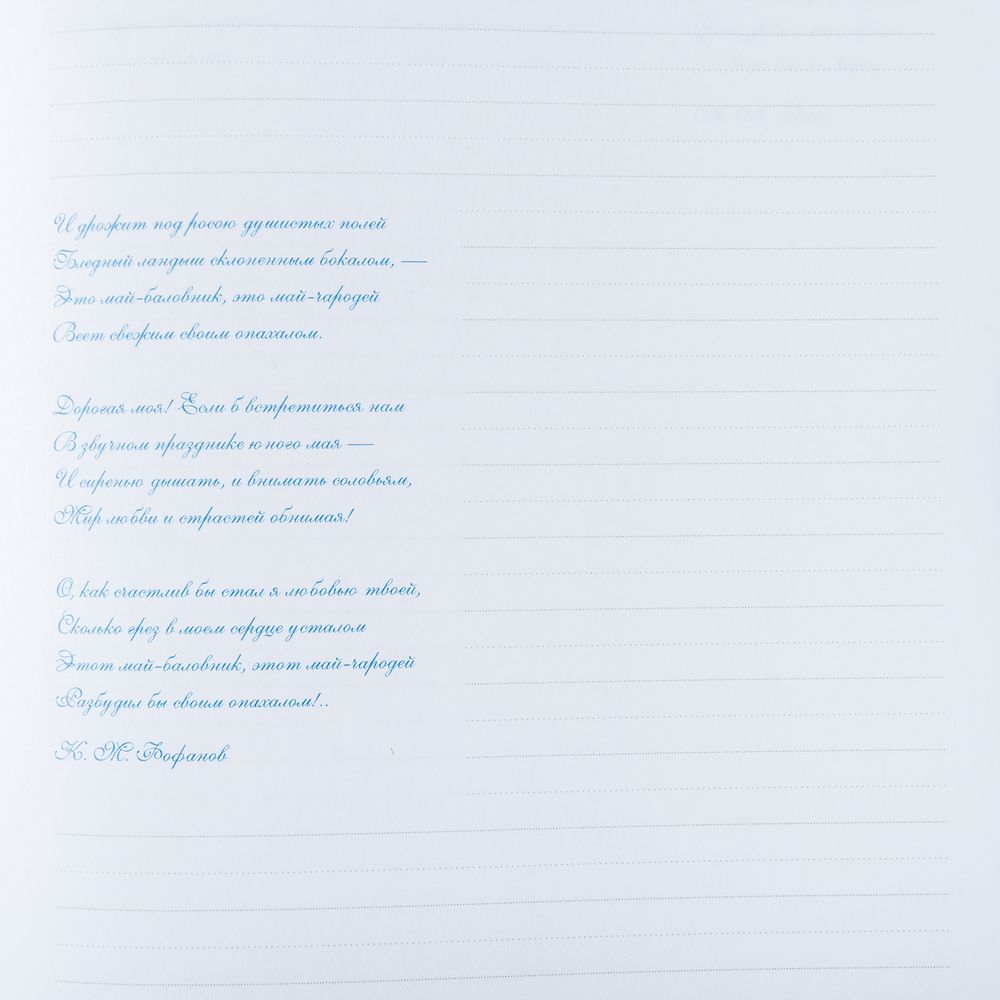 И дрожит под росою душистых полей
Бледный ландыш склоненным бокалом, —
Это май-баловник, это май-чародей
Веет свежим своим опахалом.
Дорогая моя! Если б встретиться нам
В звучном празднике юного мая —
И сиренью дышать, и внимать соловьям,
Мир любви и страстей обнимая!
О, как счастлив бы стал я любовью твоей,
Сколько грез в моем сердце усталом
Этот май-баловник, этот май-чародей
Разбудил бы своим опахалом!..
К. М. Бофанов